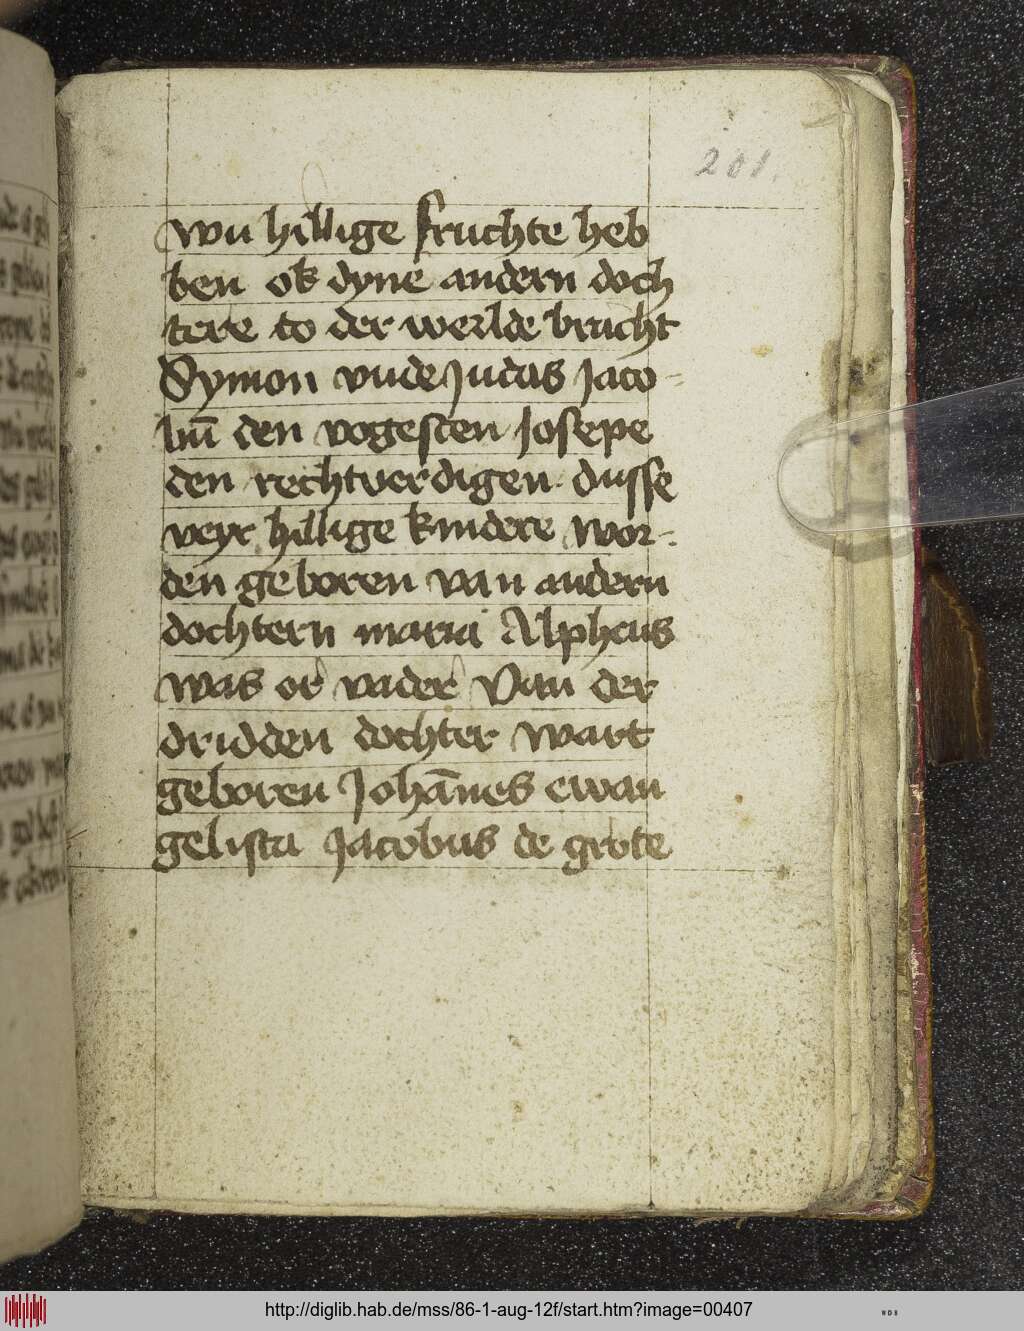 201.
wu hillige fruchte heb
ben ok dyne andern doch
tere to der werlde bracht
Symon vnde Judas Jaco-
bū den vogesten Josepe
den rechtverdigen. dusse
veyr hillige kindere wor-
den geboren van andern
dochtern maria Alpheus
was or vader Van der
dridden dochter wart
geboren Johān̄es ewan
gelista Jacobus de grote
http://diglib.hab.de/mss/86-1-aug-12f/start.htm?image=00407